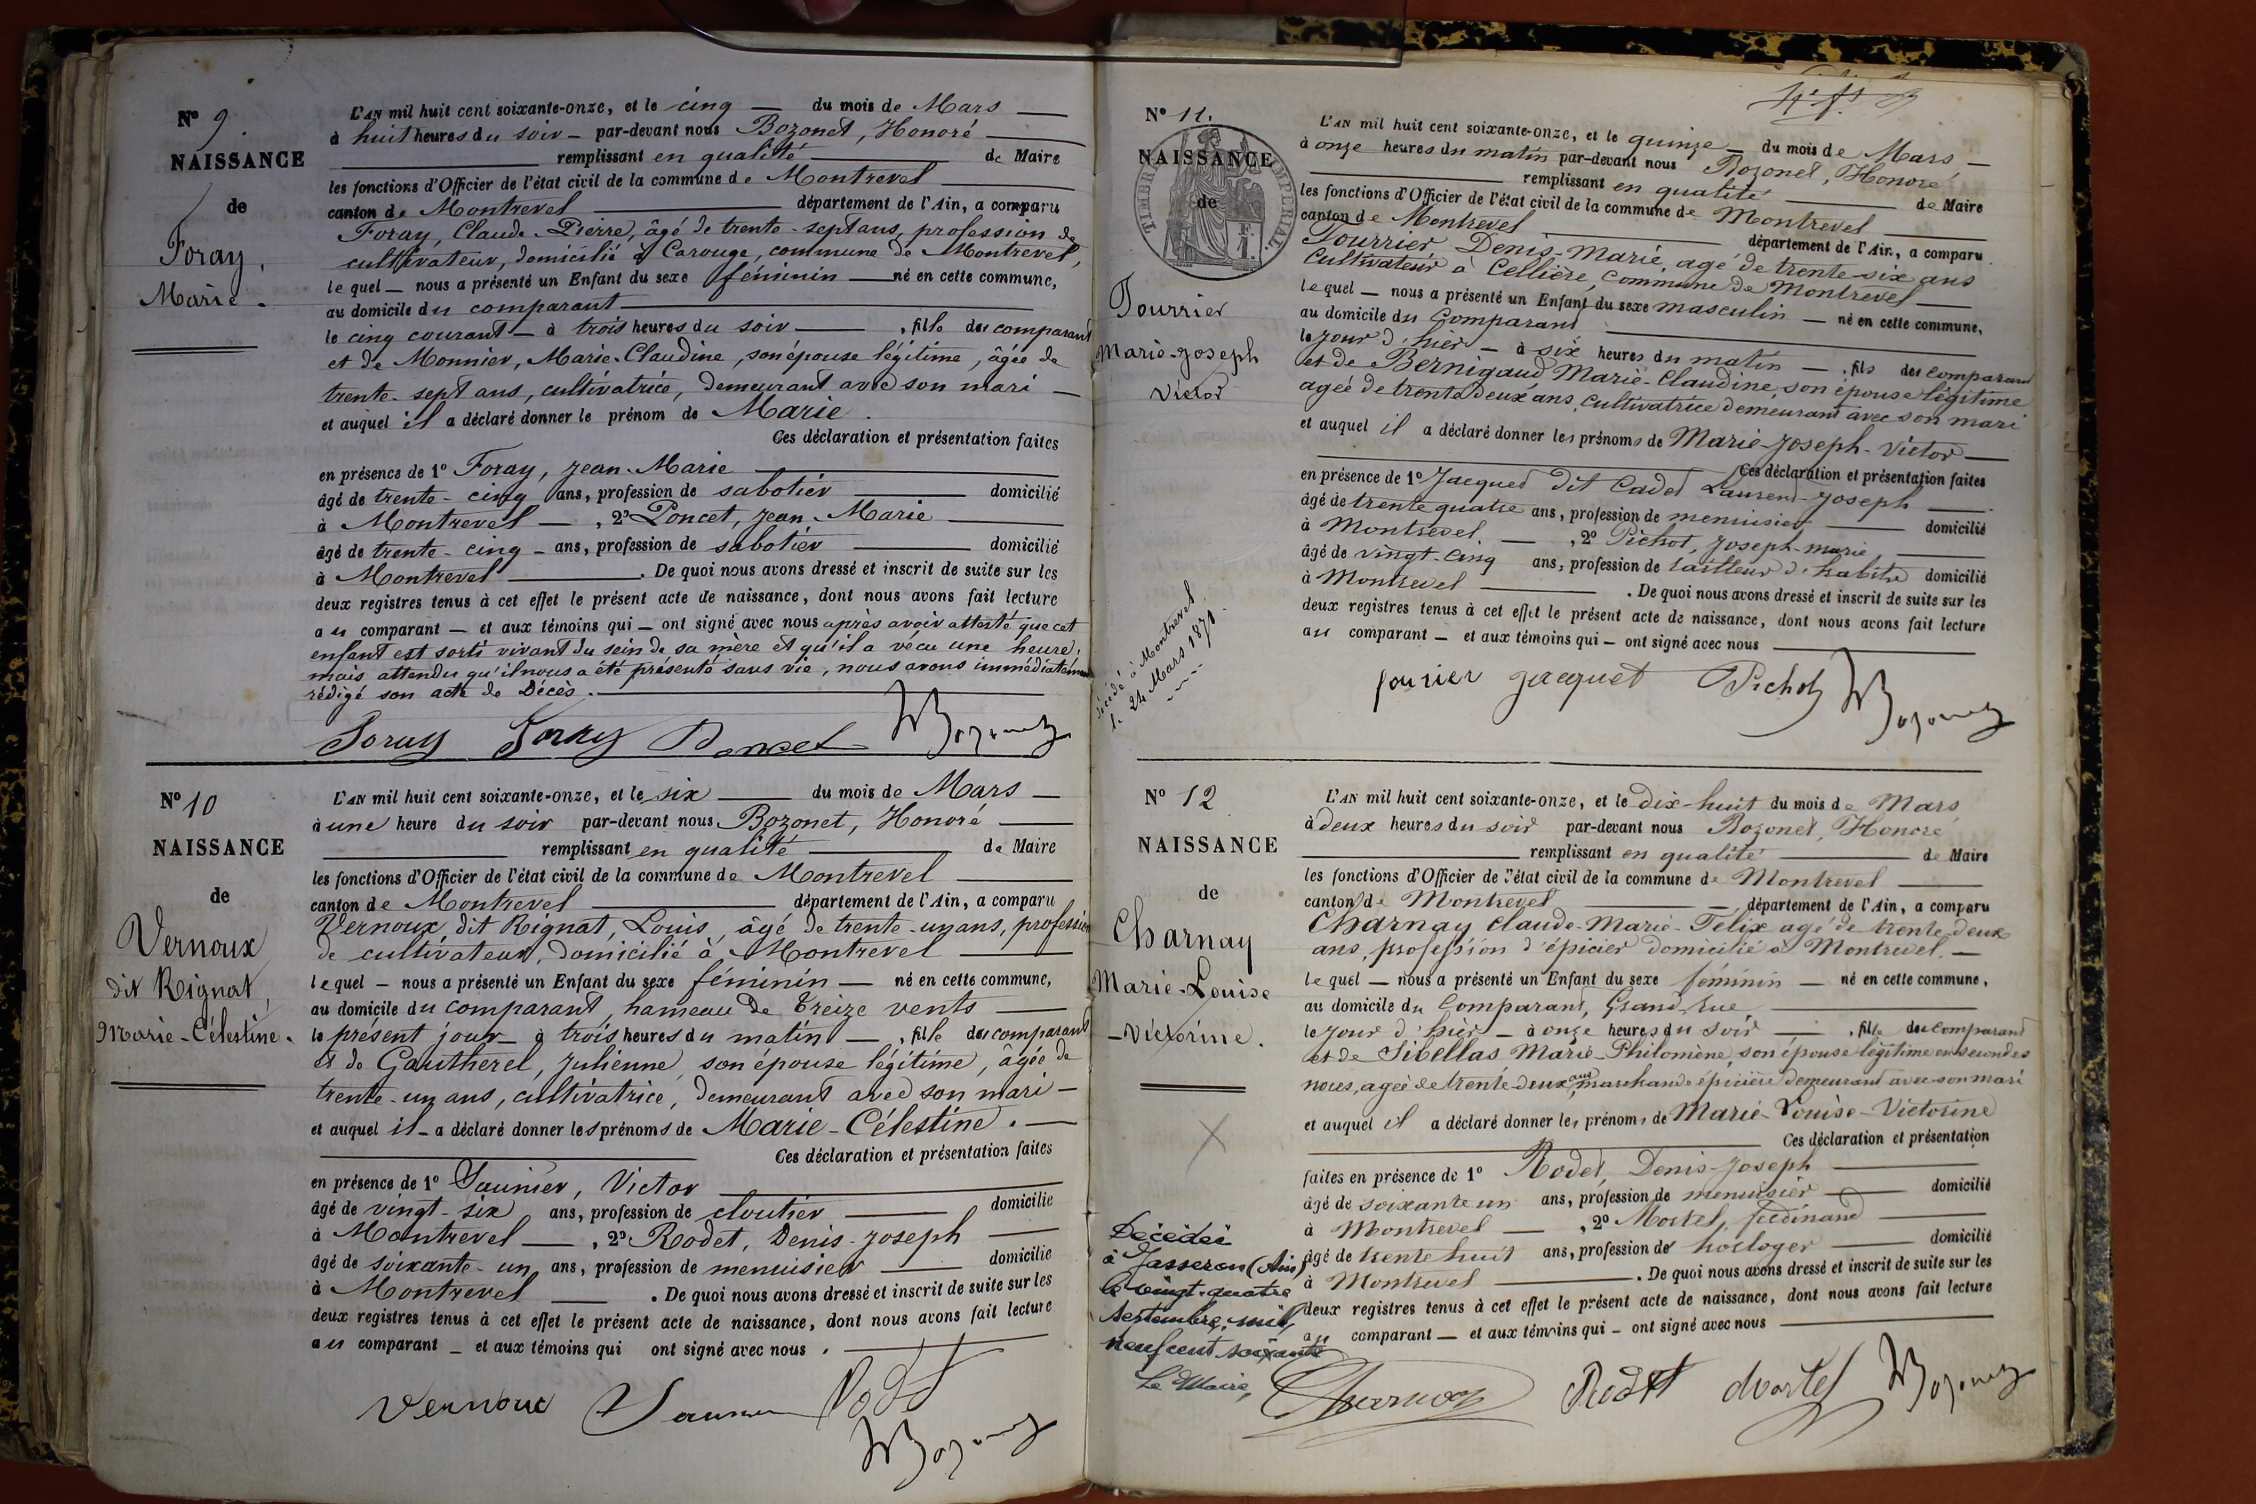 N° 9.
NAISSANCE
de
Foray,
Marie.
L'AN mil huit cent soixante-onze, et le cinq du mois de Mars
à huit heures du soir par-devant nous Bozonet, Honoré
remplissant en qualité de Maire
les fonctions d'Officier de l'état civil de la commune de Montrevel
canton de Montrevel département de l'Ain, a comparu
Foray, Claude-Pierre, âgé de trente-sept ans, profession de
cultivateur, domicilié à Carouge, commune de Montrevel,
lequel nous a présenté un Enfant du sexe féminin né en cette commune,
au domicile du comparant
le cinq courant à trois heures du soir, fille des comparant
et de Monnier, Marie-Claudine, son épouse légitime, âgée de
trente-sept ans, cultivatrice, demeurant avec son mari
et auquel il a déclaré donner le prénom de Marie.
Ces déclaration et présentation faites
en présence de 1° Foray, Jean-Marie
âgé de trente-cinq ans, profession de sabotier domicilié
à Montrevel, 2° Poncet, Jean-Marie
âgé de trente-cinq ans, profession de sabotier domicilié
à Montrevel. De quoi nous avons dressé et inscrit de suite sur les
deux registres tenus à cet effet le présent acte de naissance, dont nous avons fait lecture
au comparant et aux témoins qui ont signé avec nous après avoir attesté que cet
enfant est sorti vivant du sein de sa mère et qu'il a vécu une heure,
mais attendu qu'il nous a été présenté sans vie, nous avons immédiatement
rédigé son acte de Décès.
Foray Foray Poncet Bozonet
N° 10
NAISSANCE
de
Vernoux
dit Rignat,
Marie-Célestine.
L'AN mil huit cent soixante-onze, et le six du mois de Mars
à une heure du soir par-devant nous Bozonet, Honoré
remplissant en qualité de Maire
les fonctions d'Officier de l'état civil de la commune de Montrevel
canton de Montrevel département de l'Ain, a comparu
Vernoux dit Rignat, Louis, âgé de trente-un ans, profession
de cultivateur, domicilié à Montrevel
lequel nous a présenté un Enfant du sexe féminin né en cette commune,
au domicile du comparant, hameau de Treize vents
le présent jour à trois heures du matin, fille des comparant
et de Gautherel, Julienne, son épouse légitime, âgée de
trente-un ans, cultivatrice, demeurant avec son mari
et auquel il a déclaré donner les prénoms de Marie-Célestine.
Ces déclaration et présentation faites
en présence de 1° Saunier, Victor
âgé de vingt-six ans, profession de cloutier domicilié
à Montrevel, 2° Rodet, Denis-Joseph
âgé de soixante-un ans, profession de menuisier domicilié
à Montrevel. De quoi nous avons dressé et inscrit de suite sur les
deux registres tenus à cet effet le présent acte de naissance, dont nous avons fait lecture
au comparant et aux témoins qui ont signé avec nous.
Vernoux Saunier Rodet
Bozonet
N° 11.
TIMBRE IMPERIAL.
NAISSANCE
de
Fourrier
Marie-Joseph
Victor
décédé à Montrevel
le 24 Mars 1871
L'AN mil huit cent soixante-onze, et le quinze du mois de Mars
à onze heures du matin par-devant nous Bozonet, Honoré
remplissant en qualité de Maire
les fonctions d'Officier de l'état civil de la commune de Montrevel
canton de Montrevel département de l'Ain, a comparu
Fourrier Denis-Marie, agé de trente-six ans
Cultivateur à Cellière, commune de Montrevel
lequel nous a présenté un Enfant du sexe masculin né en cette commune,
au domicile du Comparant
le jour d'hier à six heures du matin, fils des comparant
et de Bernigaud Marie-Claudine, son épouse légitime
agée de trente deux ans, cultivatrice demeurant avec son mari
et auquel il a déclaré donner les prénoms de Marie-Joseph-Victor
Ces déclaration et présentation faites
en présence de 1° Jacquet dit Cadet Laurent-Joseph
âgé de trente quatre ans, profession de menuisier domicilié
à Montrevel, 2° Pichot, Joseph-marie,
âgé de vingt-cinq ans, profession de tailleur d'habits domicilié
à Montrevel. De quoi nous avons dressé et inscrit de suite sur les
deux registres tenus à cet effet le présent acte de naissance, dont nous avons fait lecture
au comparant et aux témoins qui ont signé avec nous
fourier Jacquet Pichot Bozonet
N° 12
NAISSANCE
de
Charnay
Marie-Louise
-Victorine.
Décédée
à Jasseron (Ain)
le vingt-quatre
septembre mil
neuf cent soixante
Le Maire,
L'AN mil huit cent soixante-onze, et le dix-huit du mois de Mars
à deux heures du soir par-devant nous Bozonet, Honoré
remplissant en qualité de Maire
les fonctions d'Officier de l'état civil de la commune de Montrevel
canton de Montrevel département de l'Ain, a comparu
Charnay Claude-Marie-Félix agé de trente deux
ans, profession d'épicier domicilié à Montrevel.
lequel nous a présenté un Enfant du sexe féminin né en cette commune,
au domicile du Comparant, Grand rue
le jour d'hier à onze heures du soir, fille des comparant
et de Sibellas Marie-Philomène, son épouse légitime en secondes
noces, agée de trente-deux ans, marchande épicière demeurant avec son mari
et auquel il a déclaré donner les prénoms de Marie-Louise-Victorine
Ces déclaration et présentation
faites en présence de 1° Rodet, Denis-Joseph
âgé de soixante un ans, profession de menuisier domicilié
à Montrevel, 2° Mortel, ferdinand
âgé de trente huit ans, profession de horloger domicilié
à Montrevel. De quoi nous avons dressé et inscrit de suite sur les
deux registres tenus à cet effet le présent acte de naissance, dont nous avons fait lecture
au comparant et aux témoins qui ont signé avec nous
Charnay Rodet Mortel Bozonet